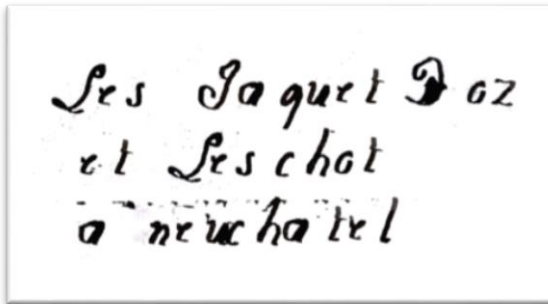 Les Jaquet Droz
et Leschot
a neuchatel